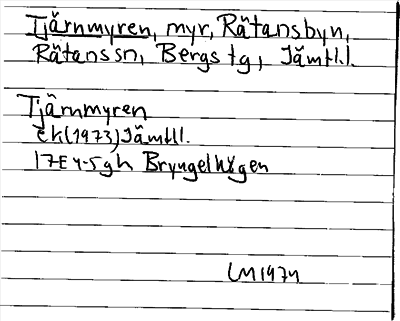 Tjärnmyren, myr, Rätansbyn,
Rätans sn, Bergs tg, Jämtl.
Tjärnmyren
ek (1973) Jämtl.
17E 4-5gh Bryngelhögen
LM1974